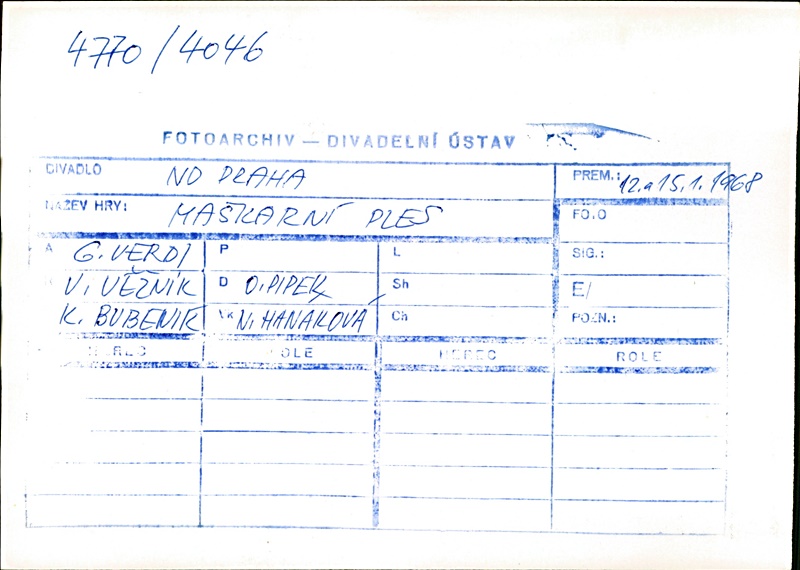 4770/4046
FOTOARCHIV — DIVADELNÍ ÚSTAV
DIVADLO ND PRAHA PREM.: 12. a 15. 1. 1968
NÁZEV HRY: MAŠKARNÍ PLES FO.O
A G. VERDI P L SIG.:
V. VĚŽNÍK D O. PIPEK Sh E/
K. BUBENÍK Vk N. HANÁKOVÁ Ch POZN.:
HEREC ROLE HEREC ROLE